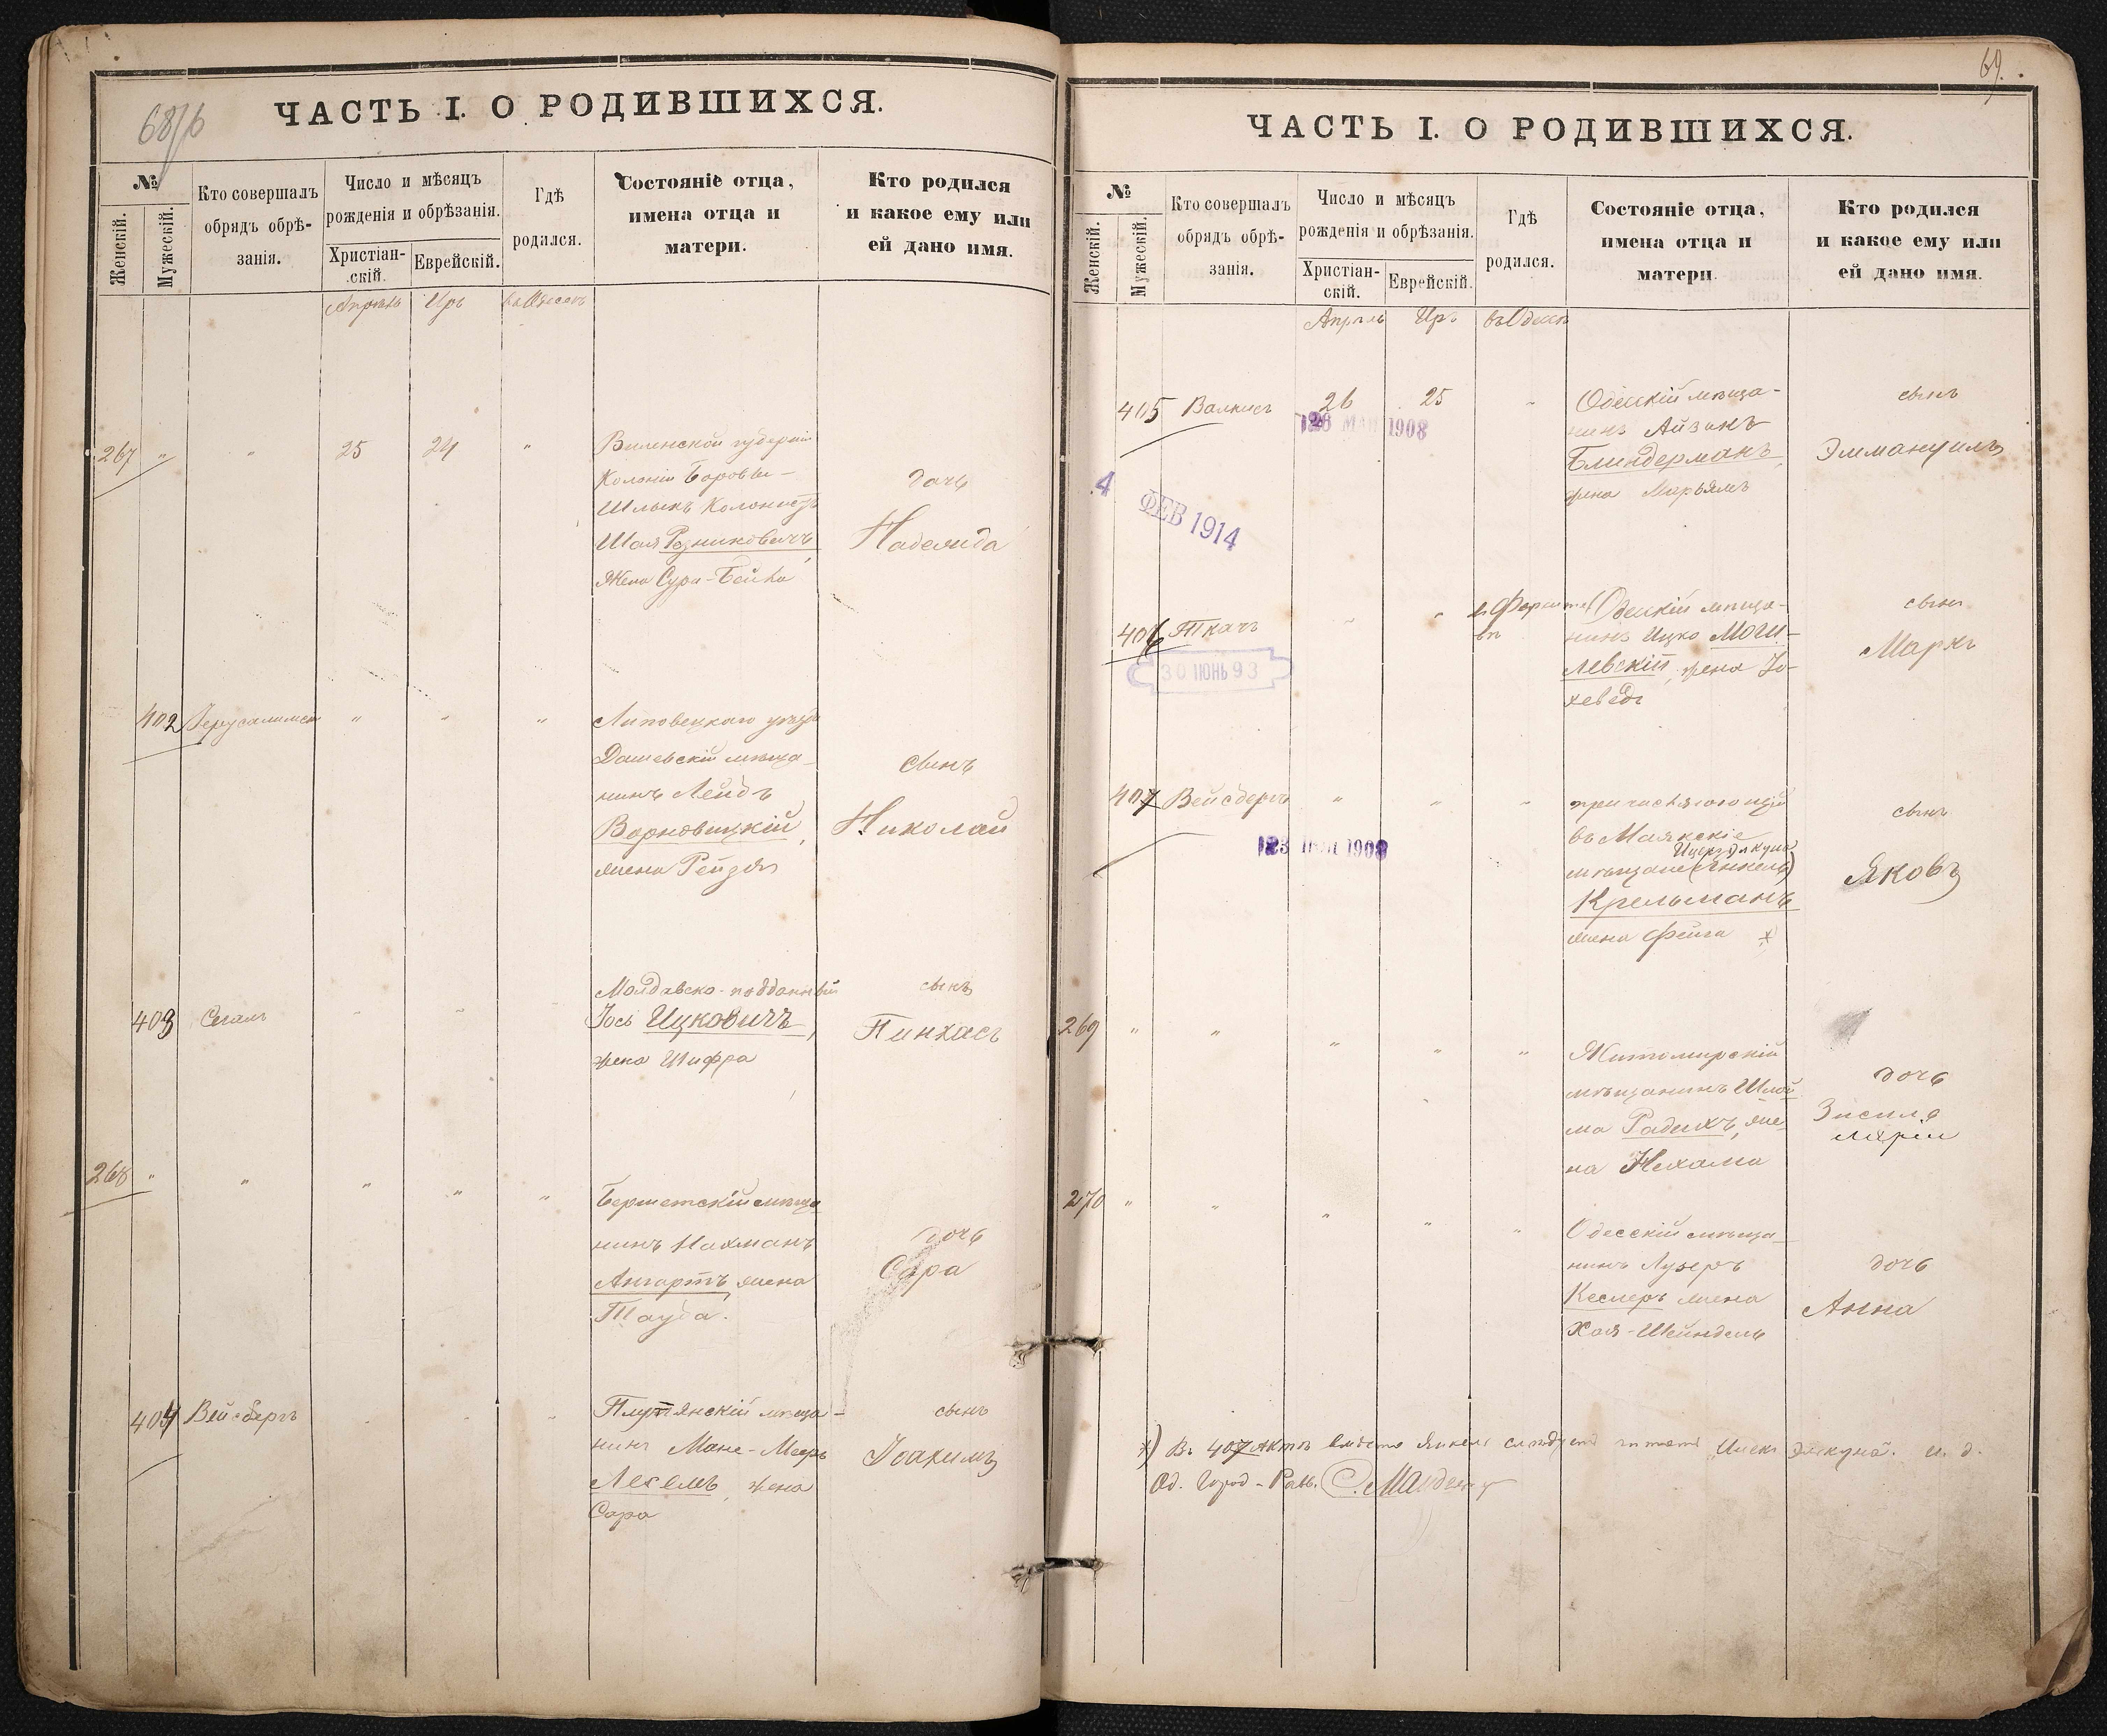 68/б
ЧАСТЬ I. О РОДИВШИХСЯ.
№
Женскій.
Мужескій.
Кто совершалъ
обрядъ обрѣ-
занія.
Число и мѣсяцъ
рожденія и обрѣзанія.
Христіан-
скій.
Еврейскій.
Гдѣ
родился.
Состояніе отца,
имена отца и
матери.
Кто родился
и какое ему или
ей дано имя.
Апрѣль Иръ въ Одессѣ
267 " " 25 24 "
Виленской губерніи
Колоніи
Колонистъ
Шая Резниковичъ,
жена Сура-Бейла
дочь
Надежда
402 " " "
Липовецкаго уѣзда
Дашевскій мѣща-
нинъ Лейбъ
Варновицкій,
жена Рейзя
сынъ
Николай
403 Сегалъ " "
Молдавско-подданный
Іось Ицковичъ,
жена Шифра
сынъ
Пинхасъ
268 " " " " "
мѣща
нинъ Нахманъ
Ангартъ, жена
Тауба.
дочь
Сара
404 Вейсбергъ " " "
мѣща-
нинъ Мане-Мееръ
жена
Сара
сынъ
Іоакимъ
69.
ЧАСТЬ I. О РОДИВШИХСЯ.
№
Женскій.
Мужескій.
Кто совершалъ
обрядъ обрѣ-
занія.
Число и мѣсяцъ
рожденія и обрѣзанія.
Христіан-
скій.
Еврейскій.
Гдѣ
родился.
Состояніе отца,
имена отца и
матери.
Кто родился
и какое ему или
ей дано имя.
Апрѣль Иръ въ Одессѣ
405 Валкисъ 26 25 "
МАЯ 1908
Одесскій мѣща-
нинъ Айзикъ
Блиндерманъ,
жена Марьямъ
сынъ
Эммануилъ
4 ФЕВ 1914
406 Ткачъ " "
30 ІЮНЬ 93
Одесскій мѣща-
нинъ Ицко Моги-
левскій, жена Іо-
хеведъ
сынъ
Маркъ
407 Вейсбергъ " " "
1908
въ Маякскіе
мѣщане (Янкель)
Крельманъ
жена Фейга *
сынъ
Яковъ
269 " " " " "
Житомирскій
мѣщанинъ Шлой
ма Радихъ, же-
на Нехама
дочь
270 " " " " "
Одесскій мѣща-
нинъ Лузеръ
Кеслеръ жена
Хая-Шейндель
дочь
Анна
*) Въ 407 актѣ вмѣсто Янкель слѣдуетъ читать и. д.
Од. Город-Равв.